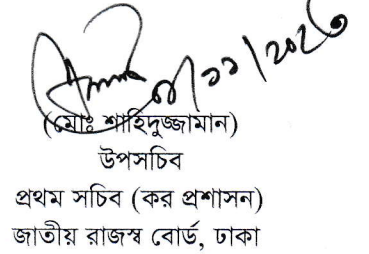 (মোঃ শাহিদুজ্জামান)
উপসচিব
প্রথম সচিব (কর প্রশাসন)
জাতীয় রাজস্ব বোর্ড, ঢাকা